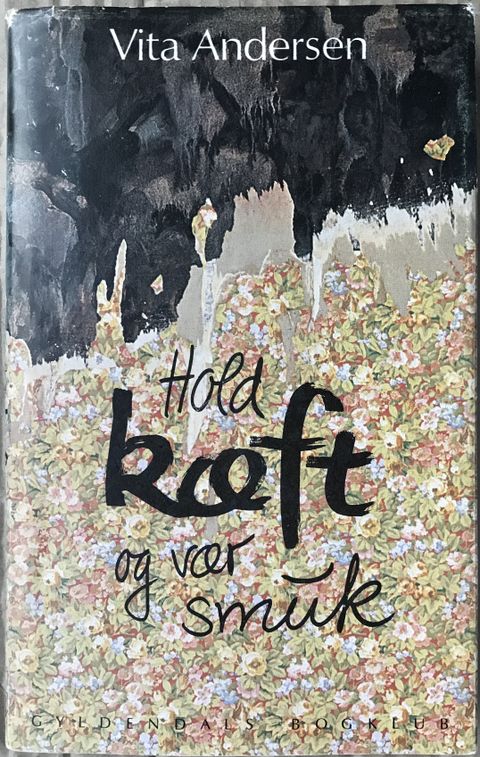 Vita Andersen
Hold
kæft
og vær
smuk
GYLDENDALS BOGKLUB